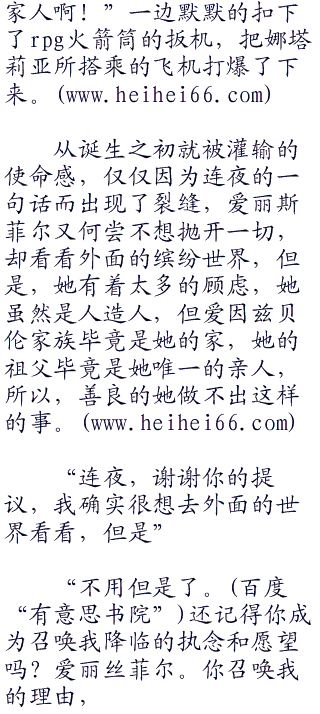 家人啊！”一边默默的扣下
了rpg火箭筒的扳机，把娜塔
莉亚所搭乘的飞机打爆了下
来。(www.heihei66.com)
从诞生之初就被灌输的
使命感，仅仅因为连夜的一
句话而出现了裂缝，爱丽斯
菲尔又何尝不想抛开一切，
却看看外面的缤纷世界，但
是，她有着太多的顾虑，她
虽然是人造人，但爱因兹贝
伦家族毕竟是她的家，她的
祖父毕竟是她唯一的亲人，
所以，善良的她做不出这样
的事。(www.heihei66.com)
“连夜，谢谢你的提
议，我确实很想去外面的世
界看看，但是”
“不用但是了。(百度
“有意思书院”)还记得你成
为召唤我降临的执念和愿望
吗？爱丽丝菲尔。你召唤我
的理由，